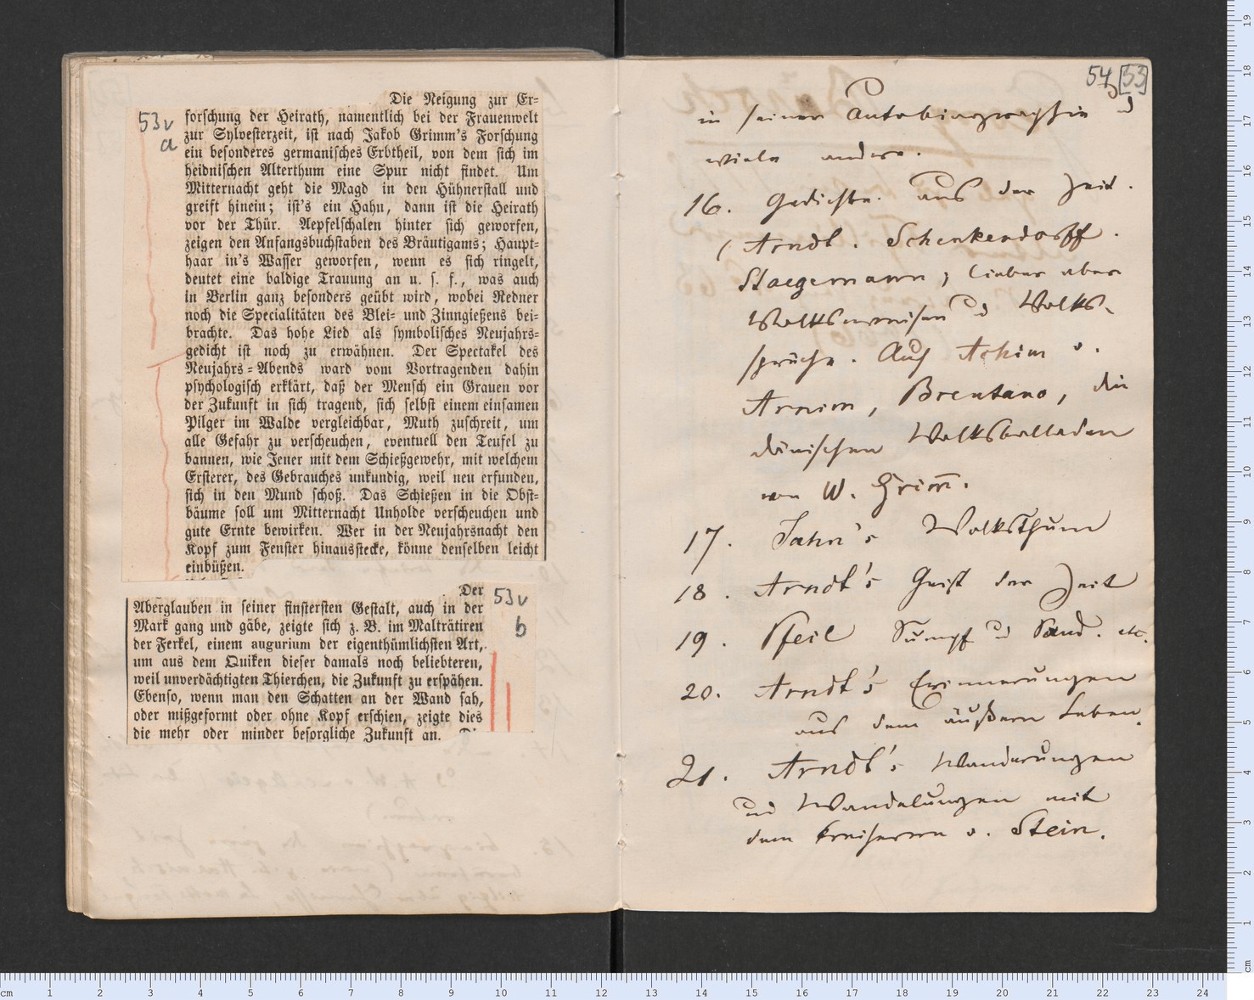 Die Neigung zur Er⸗
forschung der Heirath, namentlich bei der Frauenwelt
zur Sylvesterzeit, ist nach Jakob Grimm's Forschung
ein besonderes germanisches Erbtheil, von dem sich im
heidnischen Alterthum eine Spur nicht findet. Um
Mitternacht geht die Magd in den Hühnerstall und
greift hinein; ist's ein Hahn, dann ist die Heirath
vor der Thür. Aepfelschalen hinter sich geworfen,
zeigen den Anfangsbuchstaben des Bräutigams; Haupt⸗
haar in's Wasser geworfen, wenn es sich ringelt,
deutet eine baldige Trauung an u. s. f., was auch
in Berlin ganz besonders geübt wird, wobei Redner
noch die Specialitäten des Blei- und Zinngießens bei⸗
brachte. Das hohe Lied als symbolisches Neujahrs⸗
gedicht ist noch zu erwähnen. Der Spectakel des
Neujahrs⸗Abends ward vom Vortragenden dahin
psychologisch erklärt, daß der Mensch ein Grauen vor
der Zukunft in sich tragend, sich selbst einem einsamen
Pilger im Walde vergleichbar, Muth zuschreit, um
alle Gefahr zu verscheuchen, eventuell den Teufel zu
bannen, wie Jener mit dem Schießgewehr, mit welchem
Ersterer, des Gebrauches unkundig, weil neu erfunden,
sich in den Mund schoß. Das Schießen in die Obst⸗
bäume soll um Mitternacht Unholde verscheuchen und
gute Ernte bewirken. Wer in der Neujahrsnacht den
Kopf zum Fenster hinausstecke, könne denselben leicht
einbüßen.
53v
a
Der
Aberglauben in seiner finstersten Gestalt, auch in der
Mark gang und gäbe, zeigte sich z. B. im Malträtiren
der Ferkel, einem augurium der eigenthümlichsten Art,
um aus dem Quiken dieser damals noch beliebteren,
weil unverdächtigten Thierchen, die Zukunft zu erspähen.
Ebenso, wenn man den Schatten an der Wand sah,
oder mißgeformt oder ohne Kopf erschien, zeigte dies
die mehr oder minder besorgliche Zukunft an.
53v
b
54 [53]
in seiner Autobiographie u
viele andre.
16. Gedichte aus der Zeit.
(Arndt. Schenkendorff.
Staegemann; lieber aber
Volksweisen u Volks-
sprüche. Auch Achim v.
Arnim, Brentano, die
dänischen Volksballaden
von W. Grim̅.
17. Jahn's Volksthum
18. Arndt's Geist der Zeit
19. Pfeil Sumpf u Sand. etc.
20. Arndt's Erinnerungen
aus dem äußern Leben.
21. Arndt's Wanderungen
und Wandelungen mit
dem Freiherrn v. Stein.